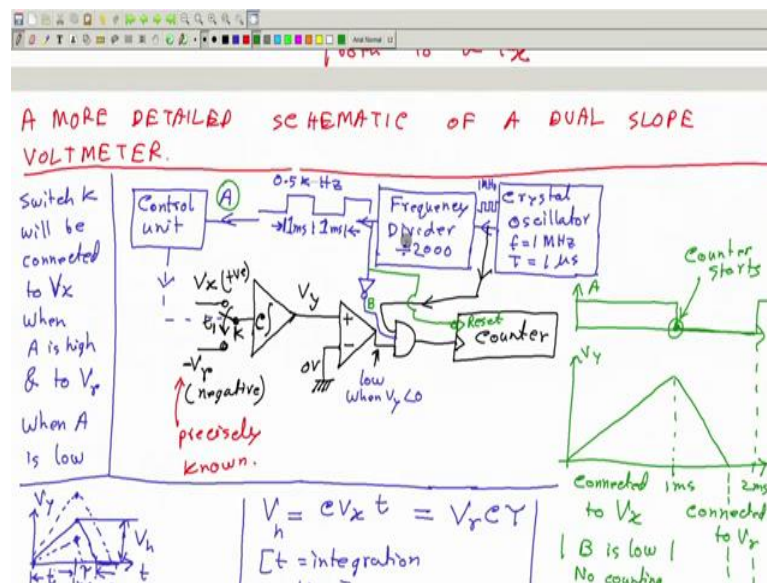 Arial Normal 12
A MORE DETAILED SCHEMATIC OF A DUAL SLOPE
VOLTMETER.
Switch K
will be
connected
to Vx
when
A is high
& to Vr
when A
is low
Control
unit
A
0.5K Hz
1ms 1ms
Frequency
Divider
÷2000
1MHz
Crystal
oscillator
f=1MHz
T=1μs
Vx (+ve)
t1
K
-Vr
(negative)
precisely
known.
C∫
Vy
+
-
0V
B
low
when Vy<0
Reset
Counter
Counter
starts
A
Vy
1ms
2ms
Connected
to Vx
Connected
to Vr
B is low
No counting
Vy
Vh
t
t
Vh = CVx t = VrCΥ
[t = integration